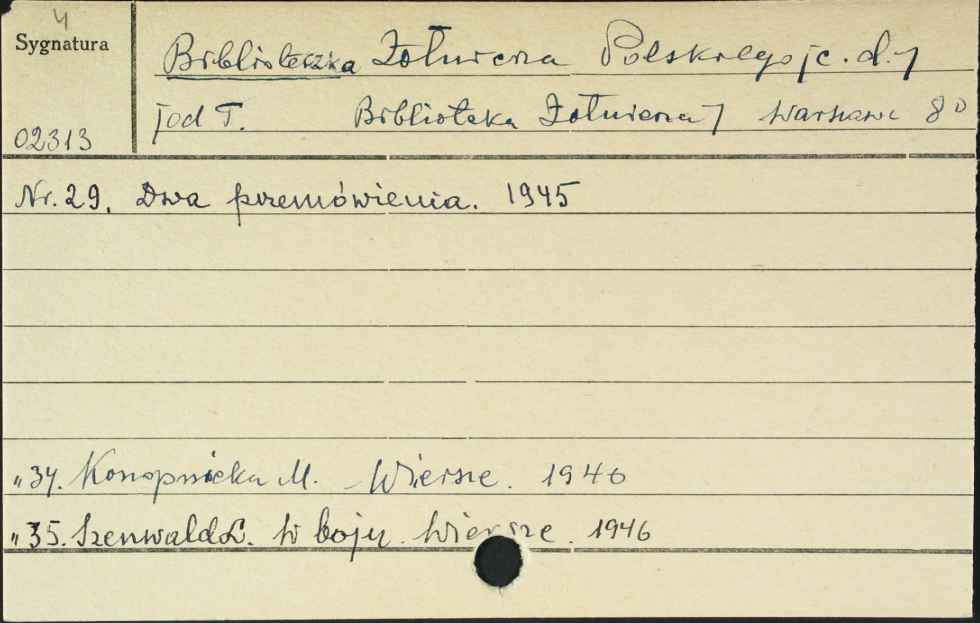 4
Sygnatura
Biblioteczka Żołnierza Polskiego [c. d.]
[od T. Biblioteka Żołnierza] Warszawa 8°
02313
Nr. 29. Dwa przemówienia. 1945
„ 34. Konopnicka M. Wiersze. 1946
„ 35. Szenwald L. W boju. Wiersze. 1946